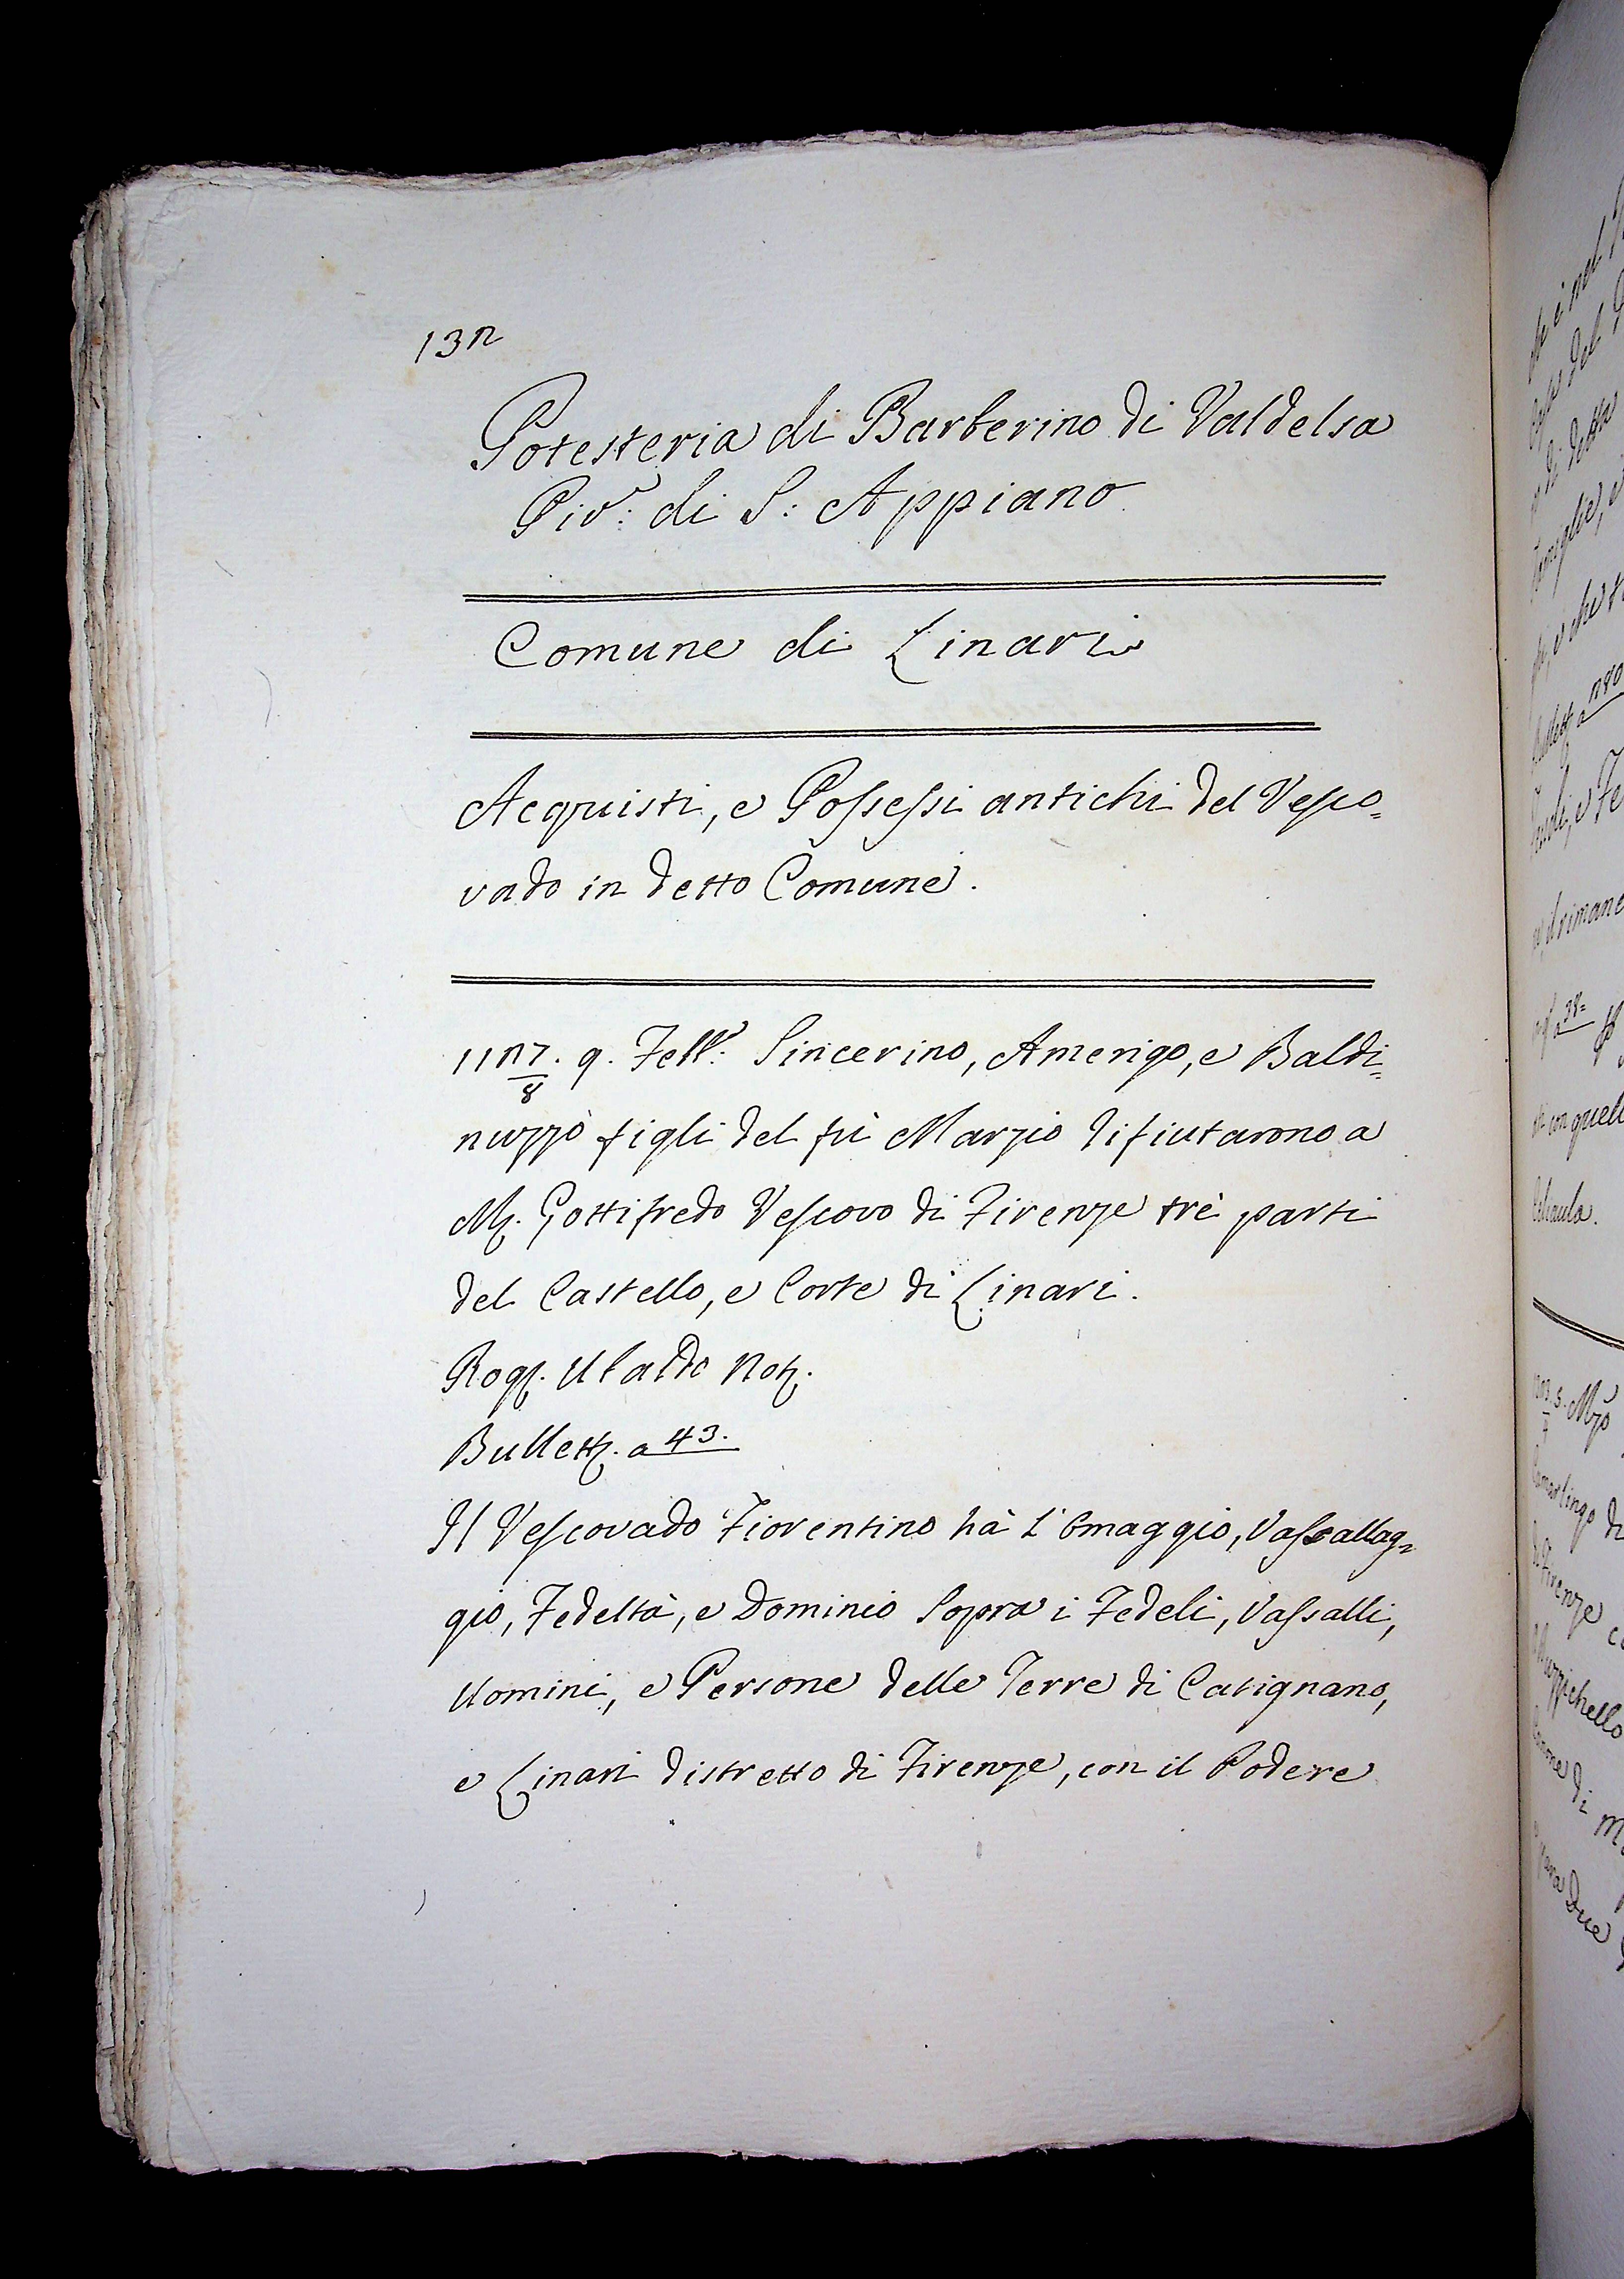 132
Potesteria di Barberino di Valdelsa
Piv.e di S: Appiano
Comune di Linari
Acquisti, e Possessi antichi del Vesco=
vado in detto Comune.
1127/8. 9. Febb.o Sincerino, Amerigo, e Baldi=
nuzzo figli del fù Marzio difiutarono a
M. Gottifredo Vescovo di Firenze trè parti
del Castello, e Corte di Linari.
Rog. Ubaldo Not.
Bullett. a 43.
Il Vescovado Fiorentino hà l'Omaggio, Vassallag=
gio, Fedeltà, e Dominio sopra i Fedeli, Vassalli,
Uomini, e Persone delle Terre di Catignano,
e Linari distretto di Firenze, con il Podere